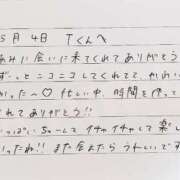 5月 4日 Tくんへ
あみに会いに来てくれてありがとう
ずーっとニコニコしてくれてて、かわい
かった〜♡ 忙しい中、時間を使って
くれてありがとう!!
っぱい ちゅーして イチャイチャして 楽し
かったね!! また会えたら うれしいです